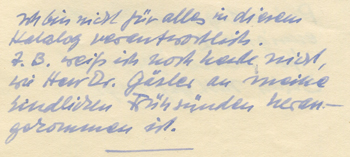 Ich bin nicht für alles in diesem
Katalog verantwortlich.
z. B. weiß ich noch heute nicht,
wie Herr Dr. Gäsler an meine
kindlichen Frühsünden heran-
gekommen ist.